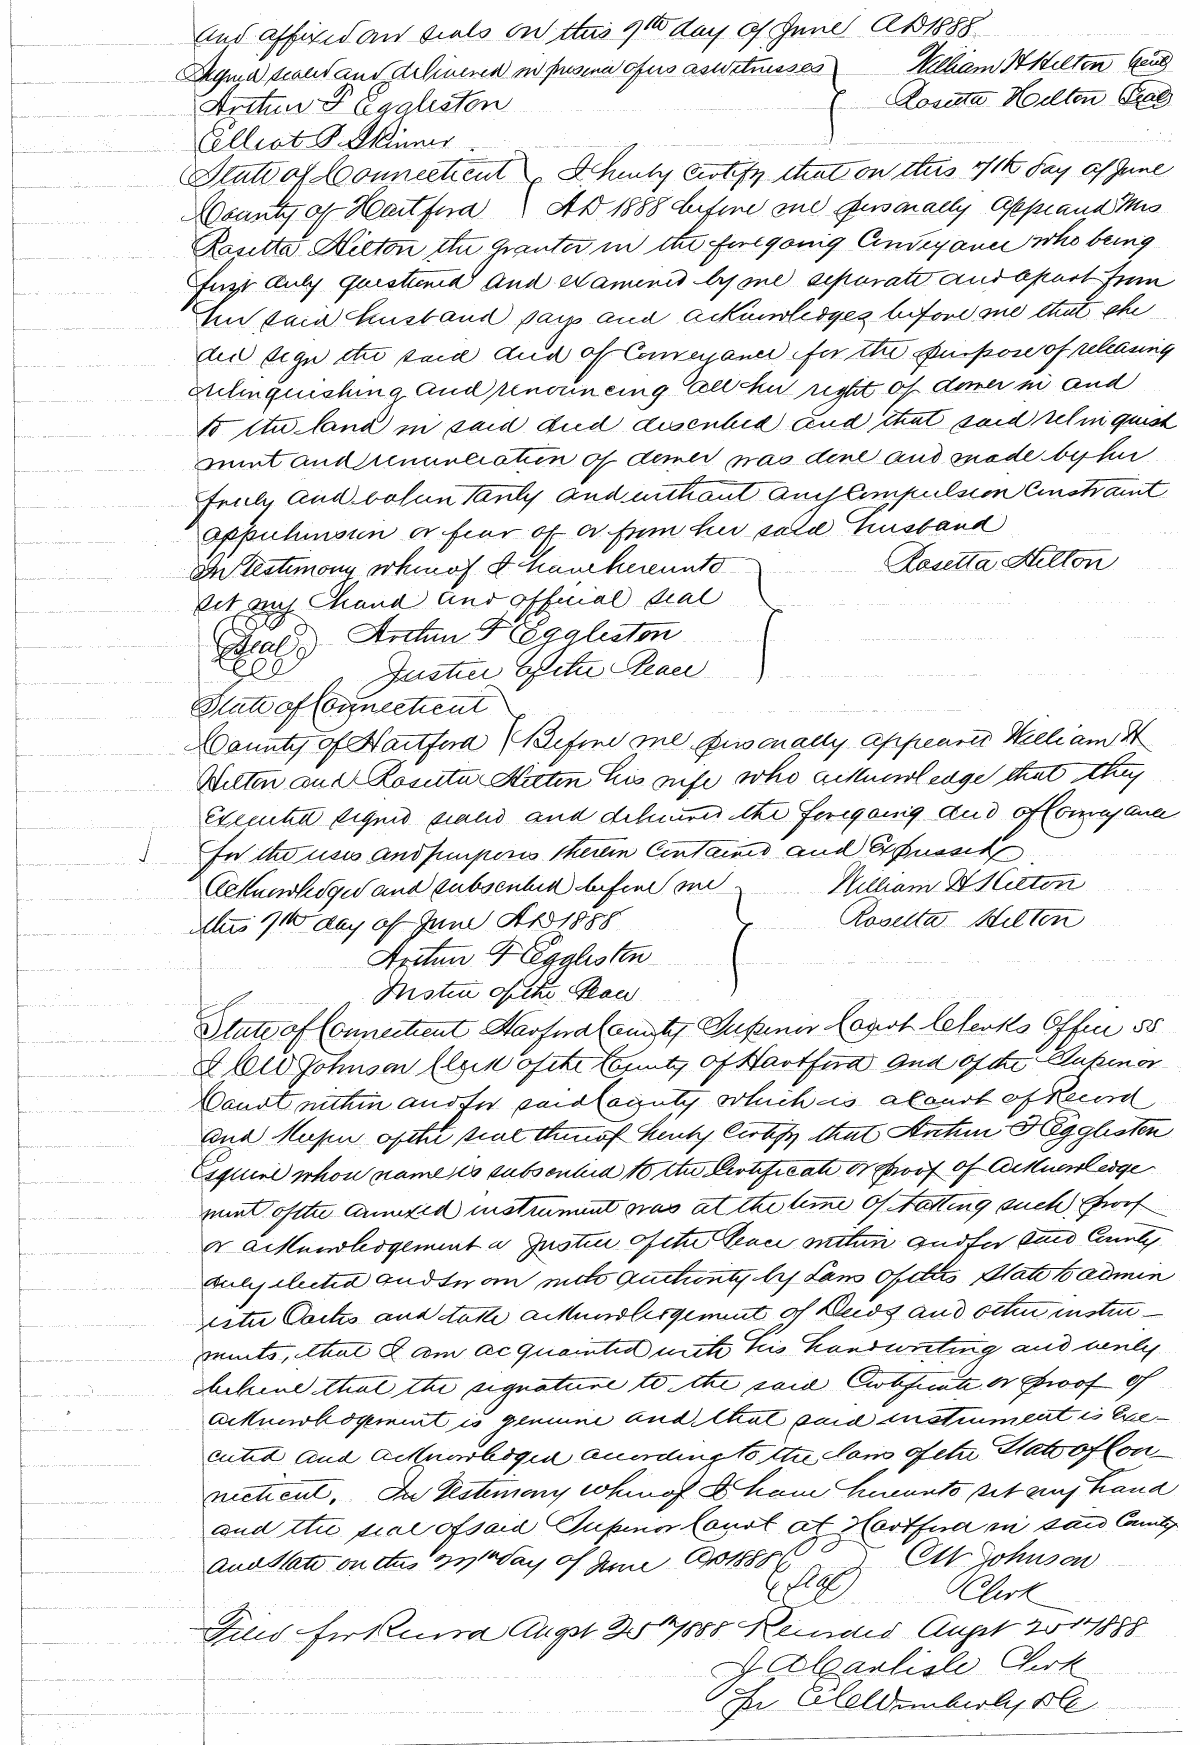 and affixed our seals on this 9th day of June AD 1888
Signed sealed and delivered in presence of us as witnesses William H Hilton (Seal)
Arthur F Eggleston Rosetta Hilton (Seal)
Elliot P. Skinner
State of Connecticut I hereby Certify that on this 9th day of June
County of Hartford AD 1888 before me personally appeared Mrs
Rosetta Hilton the grantor in the foregoing Conveyance who being
first duly questioned and examined by me separate and apart from
her said husband says and acknowledges before me that she
did sign the said deed of Conveyance for the purpose of releasing
relinquishing and renouncing all her right of dower in and
to the land in said deed described and that said relinquish
ment and renunciation of dower was done and made by her
freely and voluntarily and without any Compulsion Constraint
apprehension or fear of or from her said husband
In Testimony whereof I have hereunto Rosetta Hilton
set my hand and official seal
(Seal) Arthur F Eggleston
Justice of the Peace
State of Connecticut
County of Hartford Before me personally appeared William H
Hilton and Rosetta Hilton his wife who acknowledge that they
executed signed sealed and delivered the foregoing deed of Conveyance
for the uses and purposes therein Contained and Expressed
Acknowledged and subscribed before me William H Hilton
this 9th day of June AD 1888 Rosetta Hilton
Arthur F Eggleston
Justice of the Peace
State of Connecticut Harford County Superior Court Clerks Office ss
I CW Johnson Clerk of the County of Hartford and of the Superior
Court within and for said County which is a Court of Record
and Keeper of the seal thereof hereby Certify that Arthur F Eggleston
Esquire whose name is subscribed to the Certificate or proof of acknowledge
ment of the annexed instrument was at the time of taking such proof
or acknowledgement a Justice of the Peace within and for said County
duly elected and sworn with authority by Laws of this State to admin
ister Oaths and take acknowledgement of Deeds and other instru-
ments, that I am acquainted with his handwriting and verily
believe that the signature to the said Certificate or proof of
acknowledgement is genuine and that said instrument is Exe-
cuted and acknowledged according to the laws of the State of Con-
necticut. In Testimony whereof I have hereunto set my hand
and the seal of said Superior Court at Hartford in said County
and State on this day of June AD 1888 CW Johnson
(Seal) Clerk
Filed for Record Augst 25th 1888 Recorded Augst 25th 1888
J A Carlisle Clerk
Per DC